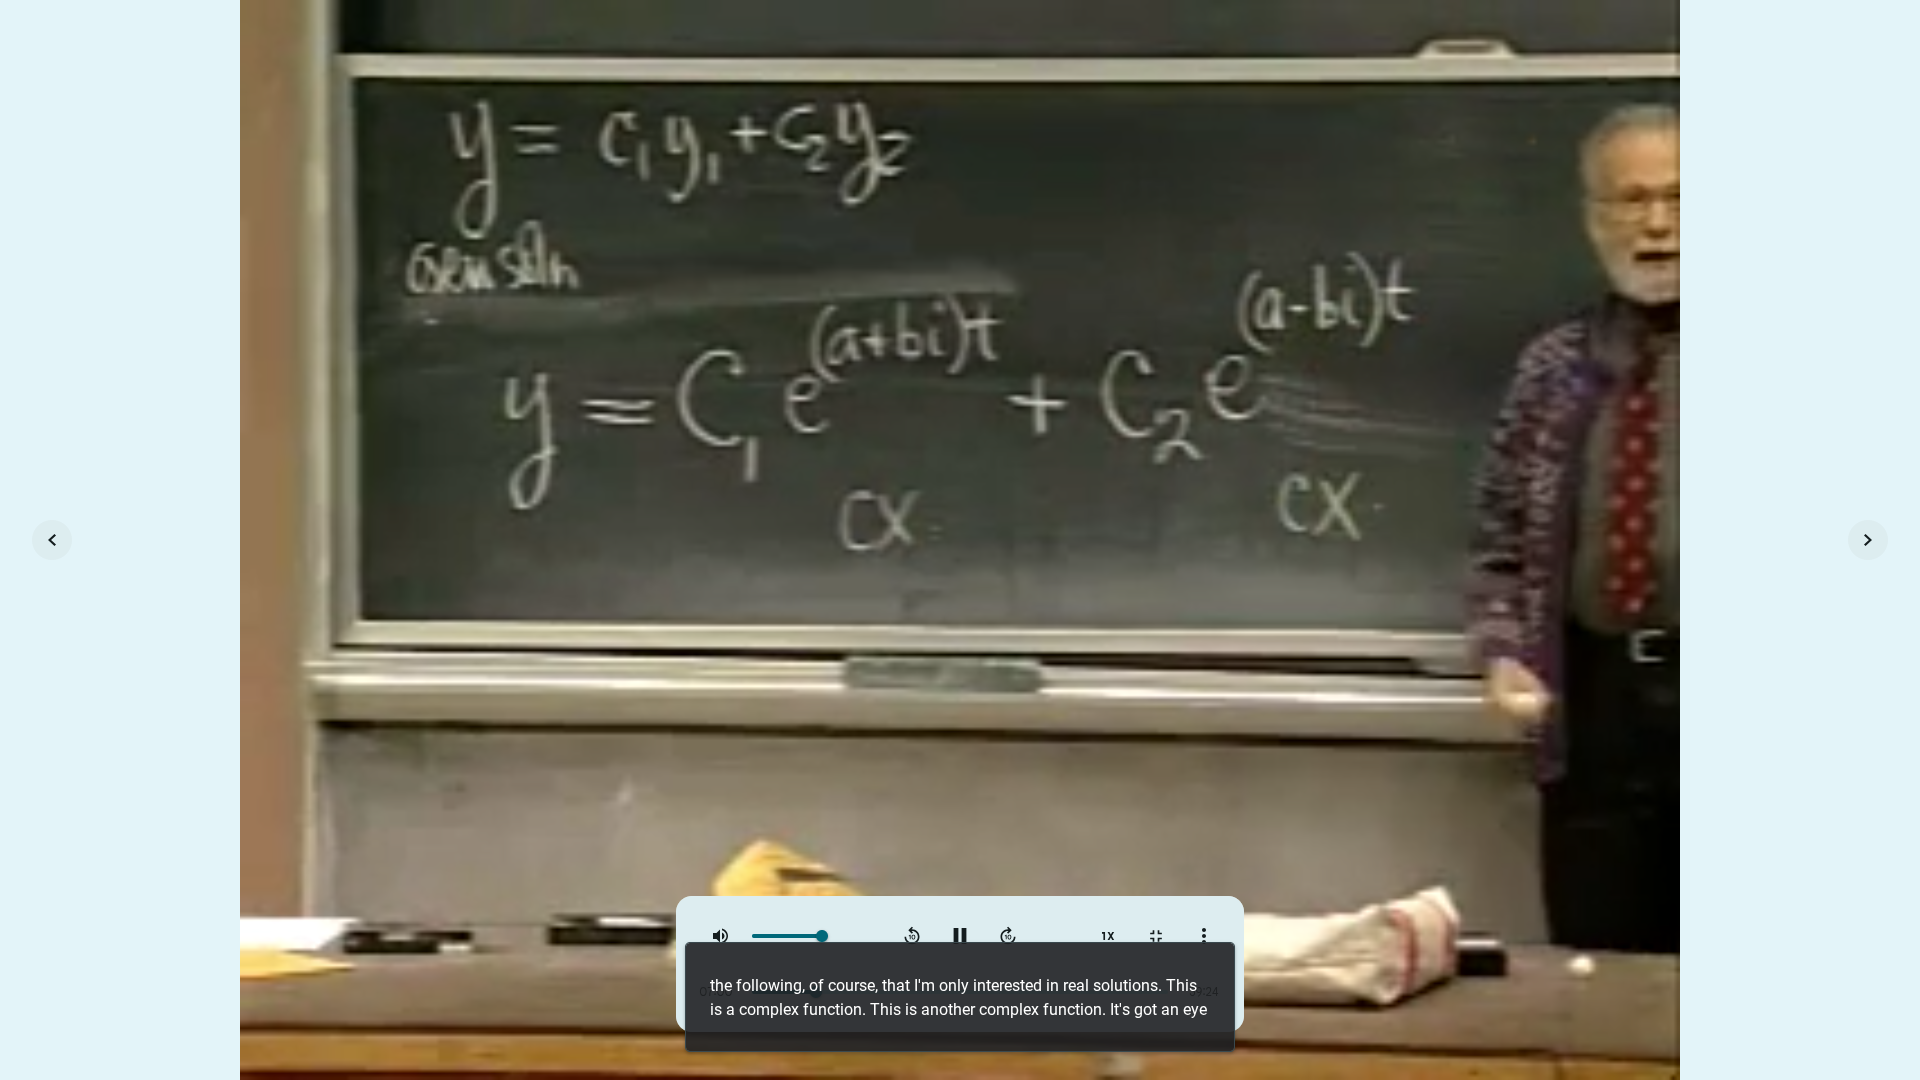 y = c₁y₁ + c₂y₂
Gen soln
y = C₁ e^(a+bi)t + C₂ e^(a-bi)t
CX.
CX.
E
1X
the following, of course, that I'm only interested in real solutions. This
is a complex function. This is another complex function. It's got an eye